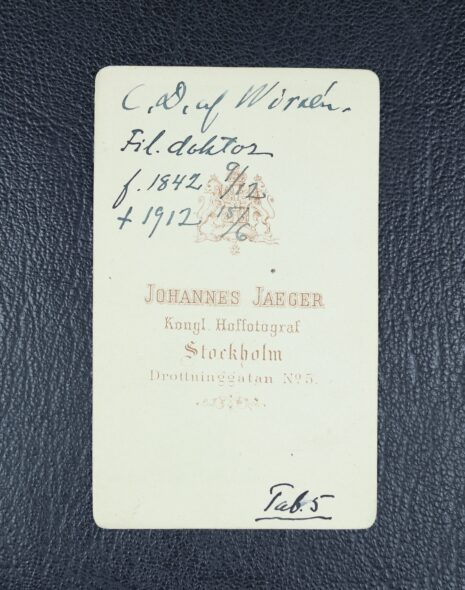 C. D. af Wirsén.
Fil. doktor
f. 1842 9/12
+ 1912 15/6
JOHANNES JAEGER
Kongl. Hoffotograf
Stockholm
Drottninggatan No 5.
Tab. 5